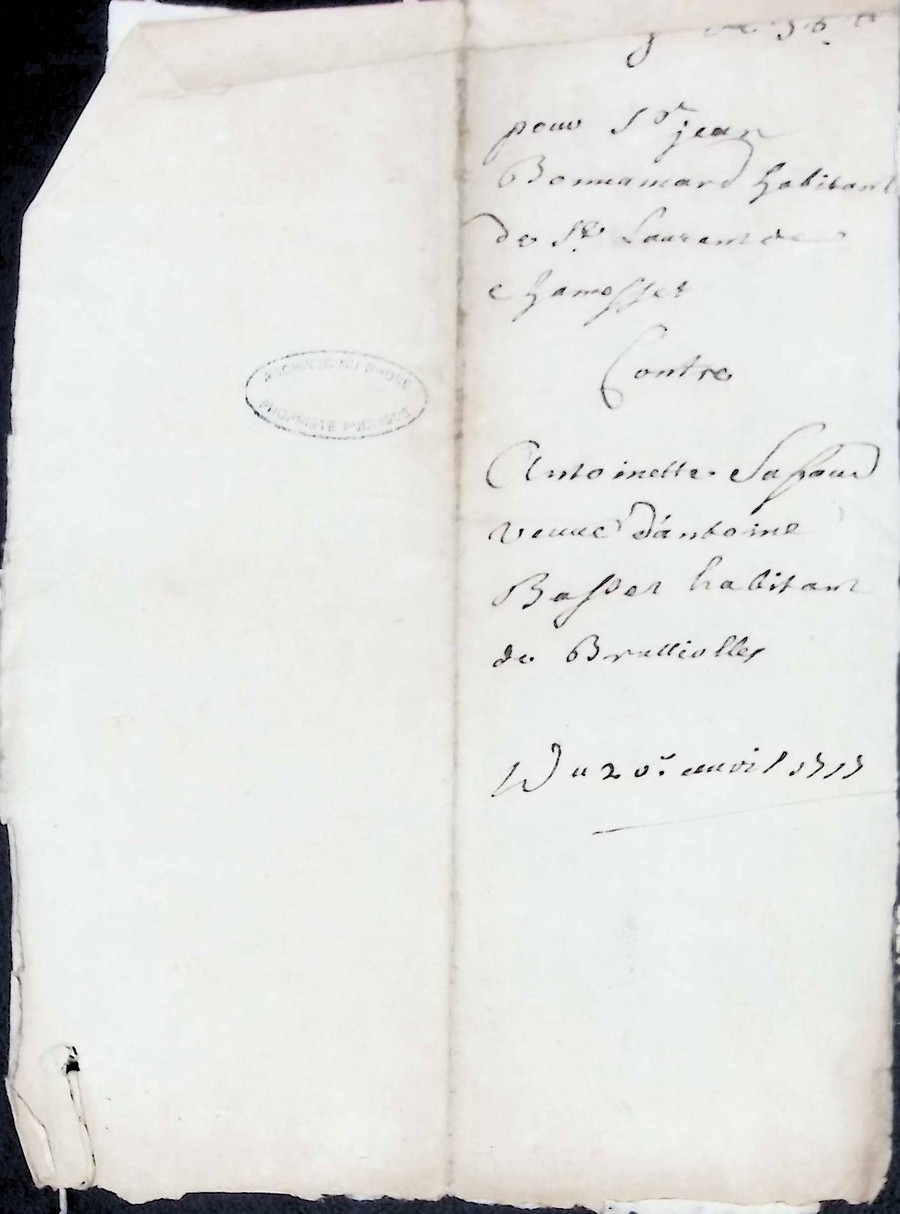 pour Sr jean
Bonnamard habitant
de St Laurent de
chamosset
Contre
Antoinette
veuue d'antoine
Basset habitant
de Brulliolles
Du 20e auril
ARCHIVES DU RHONE
PROPRIETE PUBLIQUE